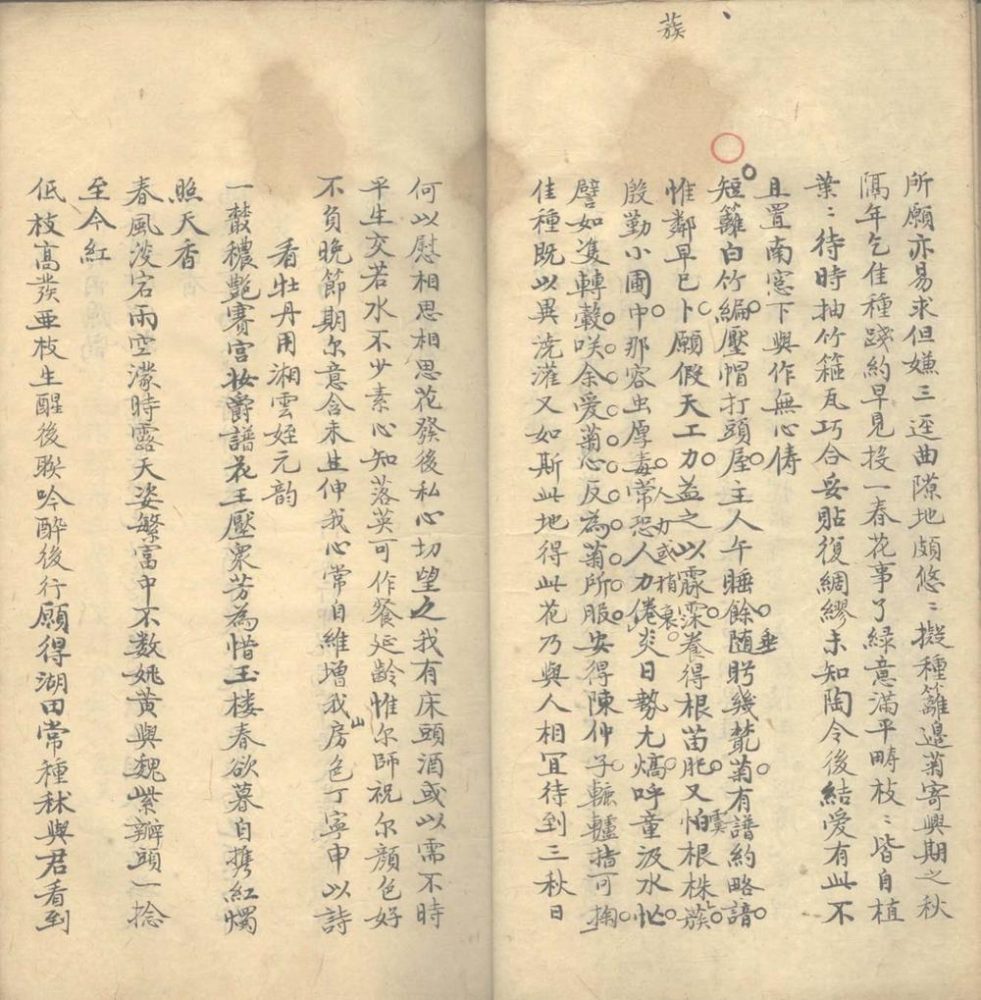 蔟
所願亦易求但嫌三逕曲隙地頗悠〻擬種籬邊菊寄興期之秋
隔年乞佳種踐約早見投一春花事了綠意滿平疇枝〻皆自植
葉〻待時抽竹籬瓦巧合妥貼復綢繆未知陶令後結愛有此不
且置南窓下與作無心儔
短籬白竹編壓帽打頭屋主人午睡餘随盻幾菶菊有譜約略諳
垂
惟鄰早已卜願假天工力益之以霡霂養得根苗肥又怕根株蔟
虞
殷勤小圃中那容虫厚毒常恐人力倦炎日勢尤熇呼童汲水忙
人力或稍衰
譬如隻轉轂咲余愛菊心反為菊所服安得陳仲子轣轤桔可掬
佳種既以異澆灌又如斯此地得此花乃與人相宜待到三秋日
何以慰相思相思花發後私心切望之我有床頭酒或以需不時
平生交若水不少素心知落英可作餐延齡惟尔師祝尔顏色好
不負晚節期尔意含未伸我心常自維增我房色丁寧申以詩
山
看牡丹用湘雲姪元韵
一叢穠艷賽宮妆爵譜花王壓衆芳為惜玉楼春欲暮自携紅燭
照天香
春風淡宕雨空濛時露天姿繁富中不数姚黃與魏紫瓣頭一捻
至今紅
低枝高發亜枝生醒後聮吟醉後行願得湖田常種秫與君看到